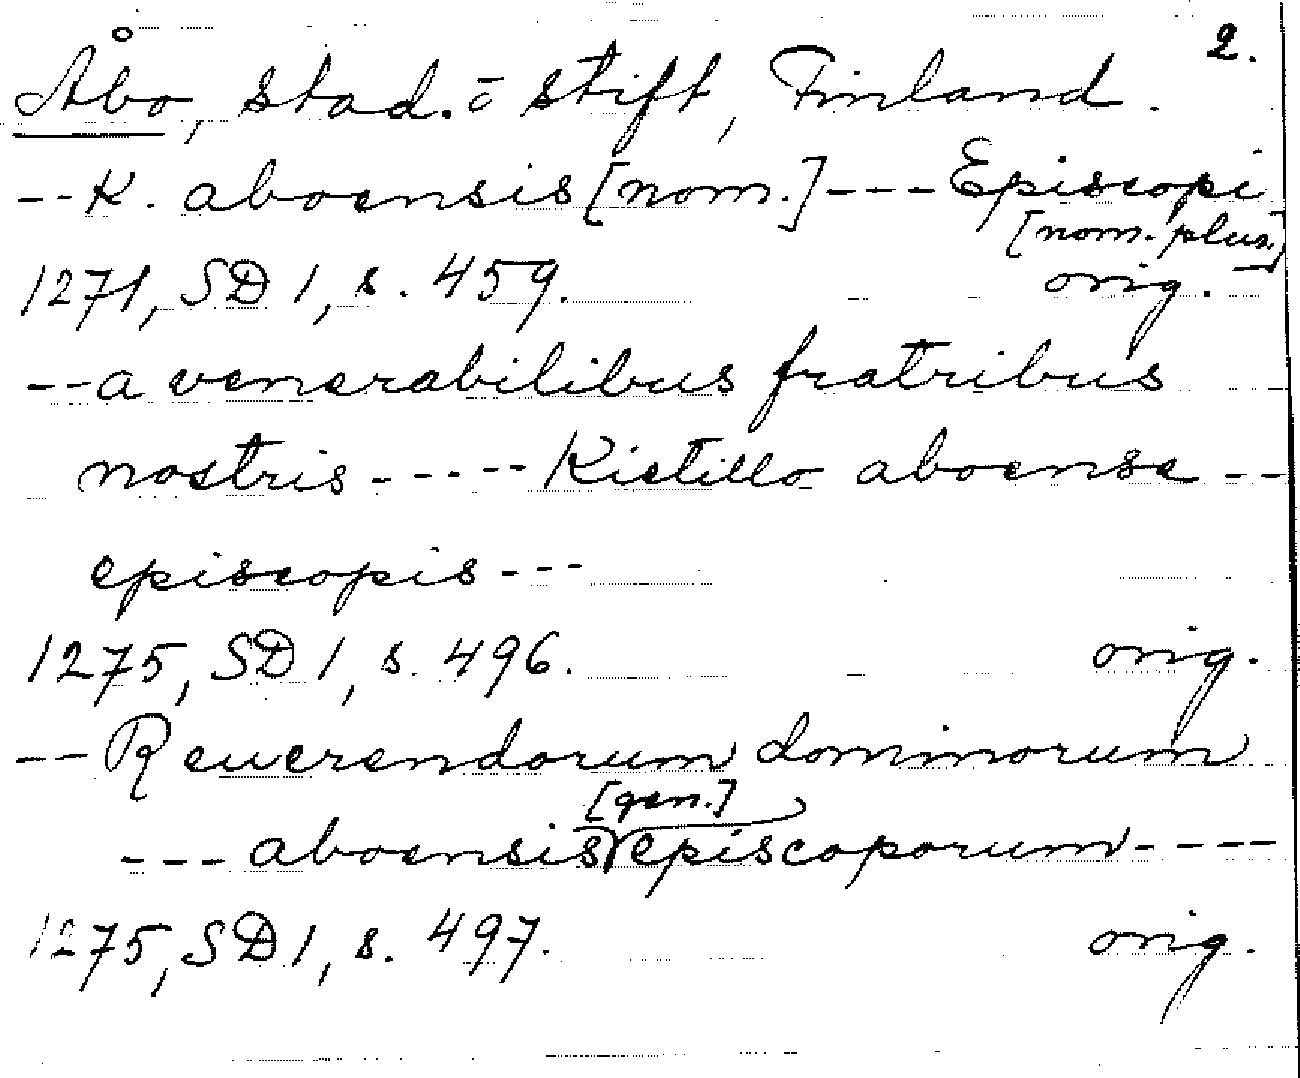 2.
Åbo, stad. o stift, Finland.
--K. aboensis [nom.]---Episcopi
[nom. plur.]
1271, SD 1, s. 459. orig.
--a venerabilibus fratribus
nostris-----Kietillo aboense--
episcopis---
1275, SD 1, s. 496. orig.
--Reuerendorum dominorum
[gen.]
---aboensis episcoporum----
1275, SD 1, s. 497. orig.